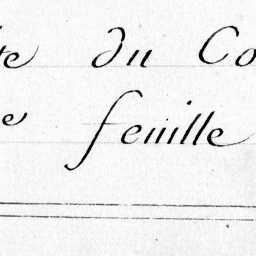 te du Co
e feuille